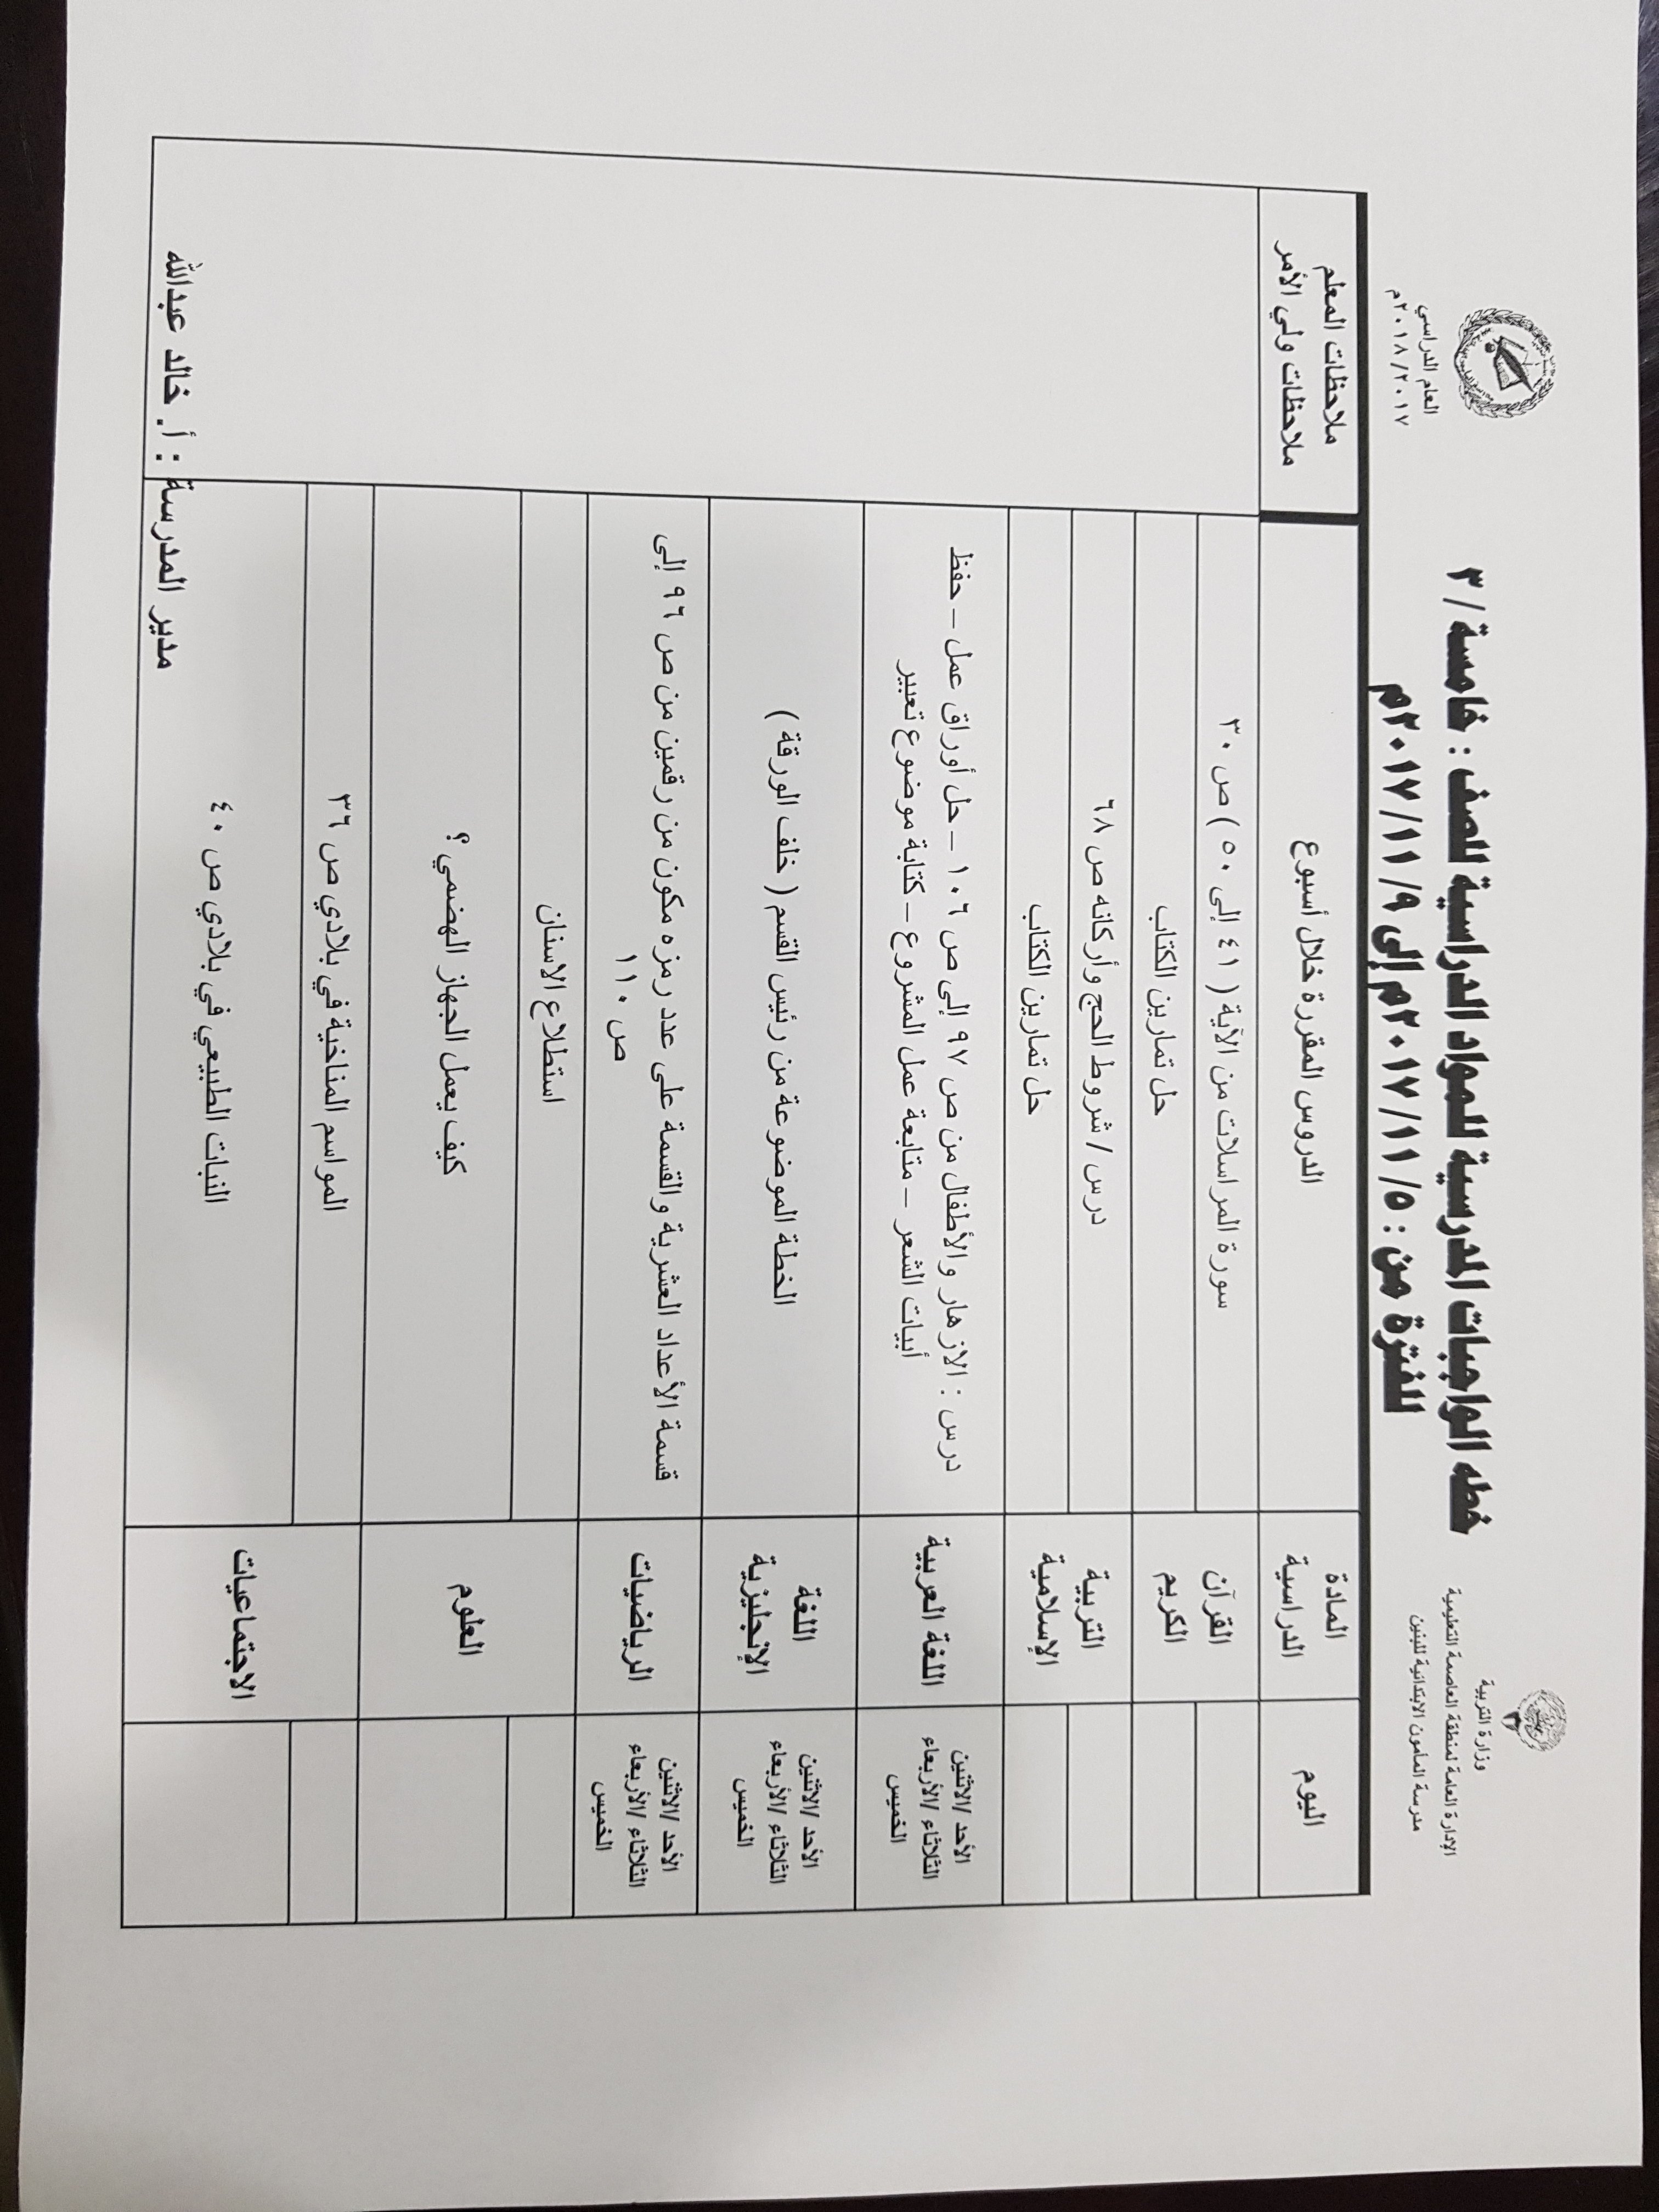 وزارة التربية
الإدارة العامة لمنطقة العاصمة التعليمية
مدرسة المأمون الابتدائية للبنين
العام الدراسي
٢٠١٨/٢٠١٧م
خطه الواجبات المدرسية للمواد الدراسية للصف : خامسة / ٣
للفترة من : ٢٠١٧/١١/٥م إلى ٢٠١٧/١١/٩م
اليوم
المادة
الدراسية
الدروس المقررة خلال أسبوع
ملاحظات المعلم
ملاحظات ولي الأمر
القرآن
الكريم
سورة المراسلات من الآية ( ٤١ إلى ٥٠ ) ص ٣٠
حل تمارين الكتاب
التربية
الإسلامية
درس / شروط الحج وأركانه ص ٦٨
حل تمارين الكتاب
الأحد /الاثنين
الثلاثاء /الأربعاء
الخميس
اللغة العربية
درس : الازهار والأطفال من ص ٩٧ إلى ص ١٠٦ – حل أوراق عمل – حفظ
أبيات الشعر – متابعة عمل المشروع – كتابة موضوع تعبير
الأحد /الاثنين
الثلاثاء /الأربعاء
الخميس
اللغة
الإنجليزية
الخطة الموضوعة من رئيس القسم ( خلف الورقة )
الأحد /الاثنين
الثلاثاء /الأربعاء
الخميس
الرياضيات
قسمة الأعداد العشرية والقسمة على عدد رمزه مكون من رقمين من ص ٩٦ إلى
ص ١١٠
العلوم
استطلاع الاسنان
كيف يعمل الجهاز الهضمي ؟
الاجتماعيات
المواسم المناخية في بلادي ص ٣٦
النبات الطبيعي في بلادي ص ٤٠
مدير المدرسة : أ. خالد عبدالله